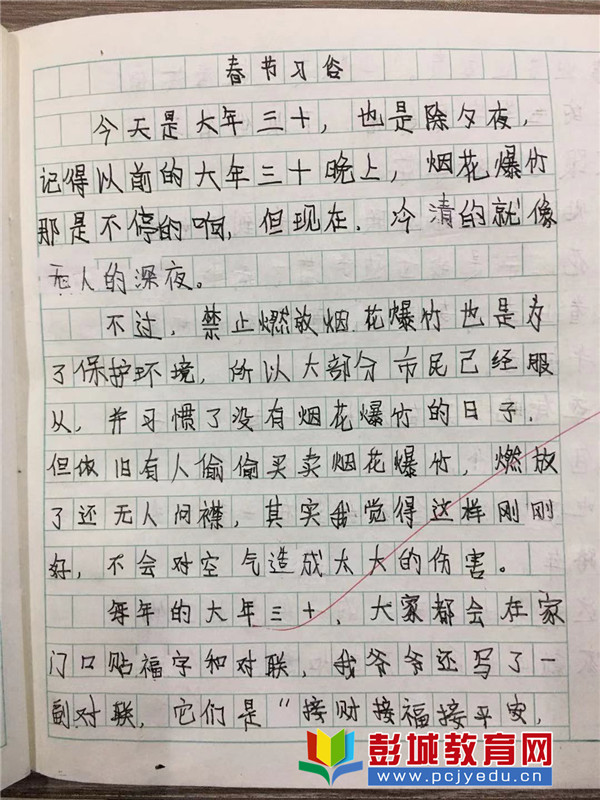 春节习俗
今天是大年三十，也是除夕夜，
记得以前的大年三十晚上，烟花爆竹
那是不停的响，但现在，冷清的就像
无人的深夜。
不过，禁止燃放烟花爆竹也是为
了保护环境，所以大部分市民已经服
从，并习惯了没有烟花爆竹的日子，
但依旧有人偷偷买卖烟花爆竹，燃放
了还无人问襟，其实我觉得这样刚刚
好，不会对空气造成太大的伤害。
每年的大年三十，大家都会在家
门口贴福字和对联，我爷爷还写了一
副对联，它们是“接财接福接平安，
彭城教育网
www.pcjyedu.cn